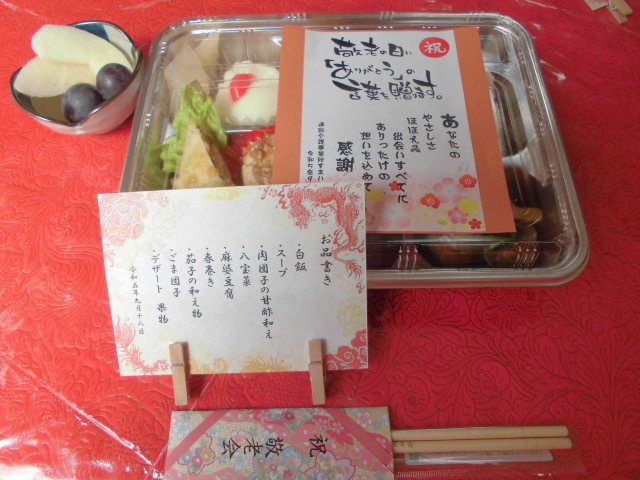 祝
敬老の日に
「ありがとう」の
言葉を贈ります。
あなたの
やさしさ
ほほえみ
出会いすべてに
ありったけの
想いを込めて
感謝
お品書き
・白飯
・スープ
・肉団子の甘酢和え
・八宝菜
・麻婆豆腐
・春巻き
・茄子の和え物
・ごま団子
デザート 果物
令和五年九月十八日
祝
敬老会